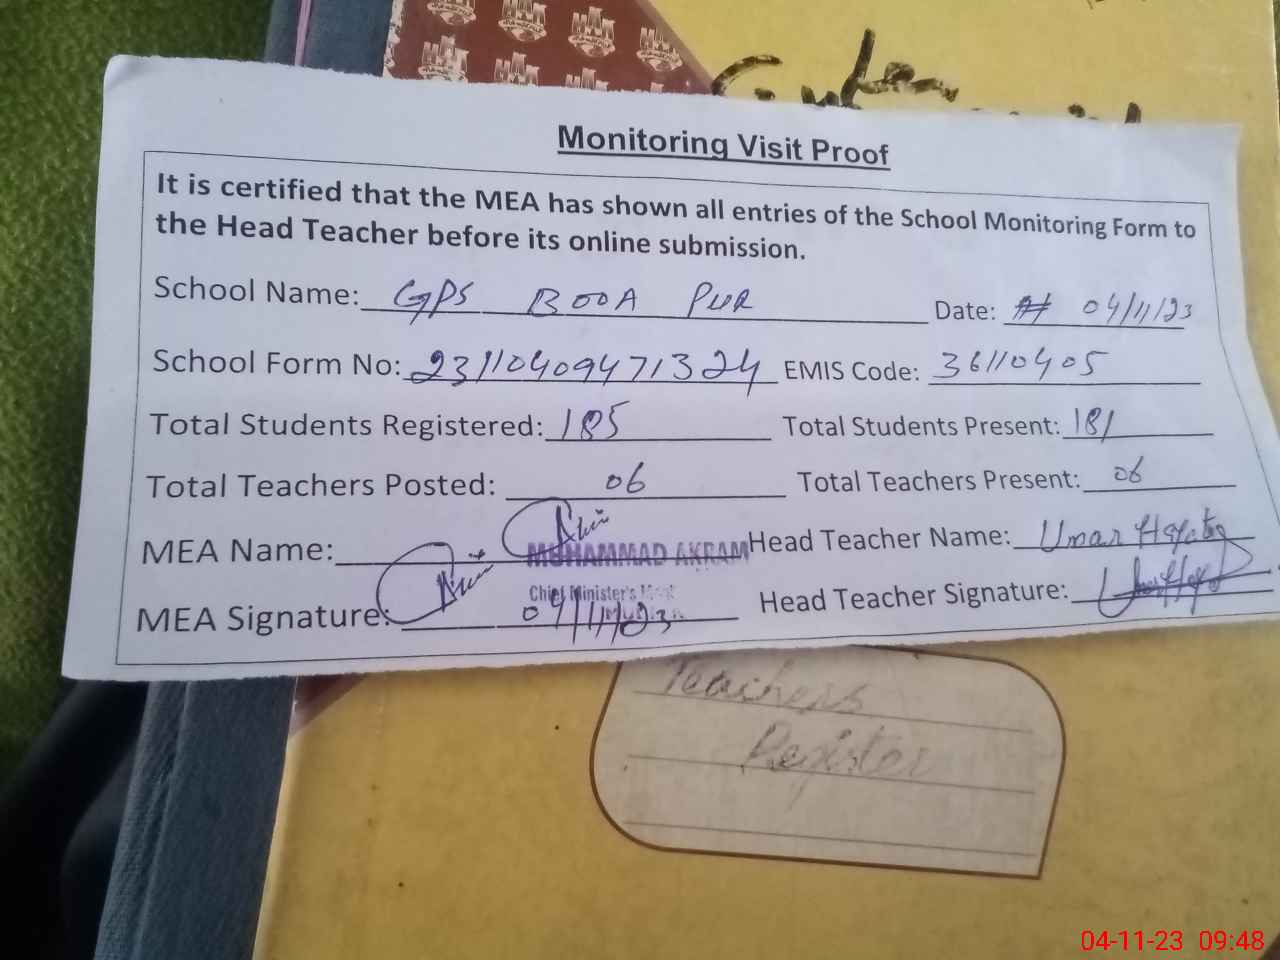 Monitoring Visit Proof
It is certified that the MEA has shown all entries of the School Monitoring Form to
the Head Teacher before its online submission.
School Name: GPS BOOA PUR Date: 04/11/23
School Form No: 23110409471324 EMIS Code: 36110405
Total Students Registered: 185 Total Students Present: 181
Total Teachers Posted: 06 Total Teachers Present: 06
MEA Name: MUHAMMAD AKRAM Head Teacher Name: Umar
Chief Minister's
MEA Signature: 04/11/23 Head Teacher Signature:
Teachers
Register
04-11-23 09:48